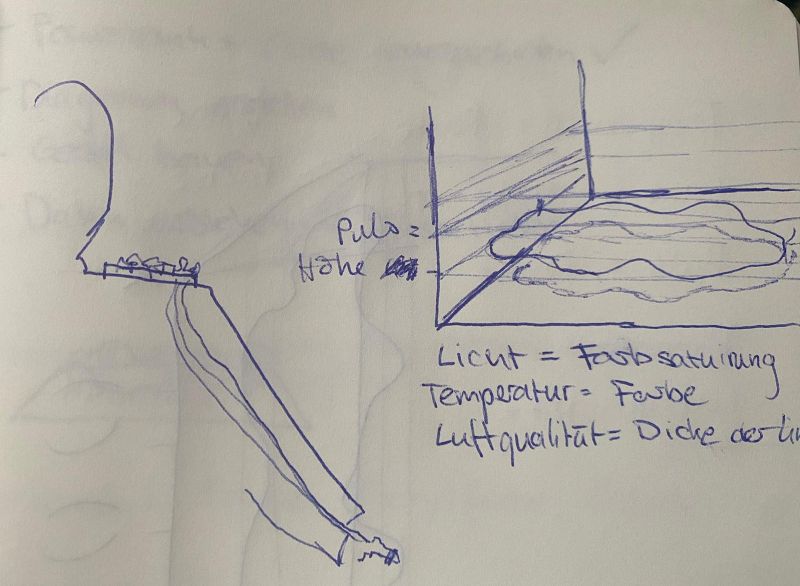 Puls =
Höhe
Licht = Farbsaturirung
Temperatur = Farbe
Luftqualität = Dicke der